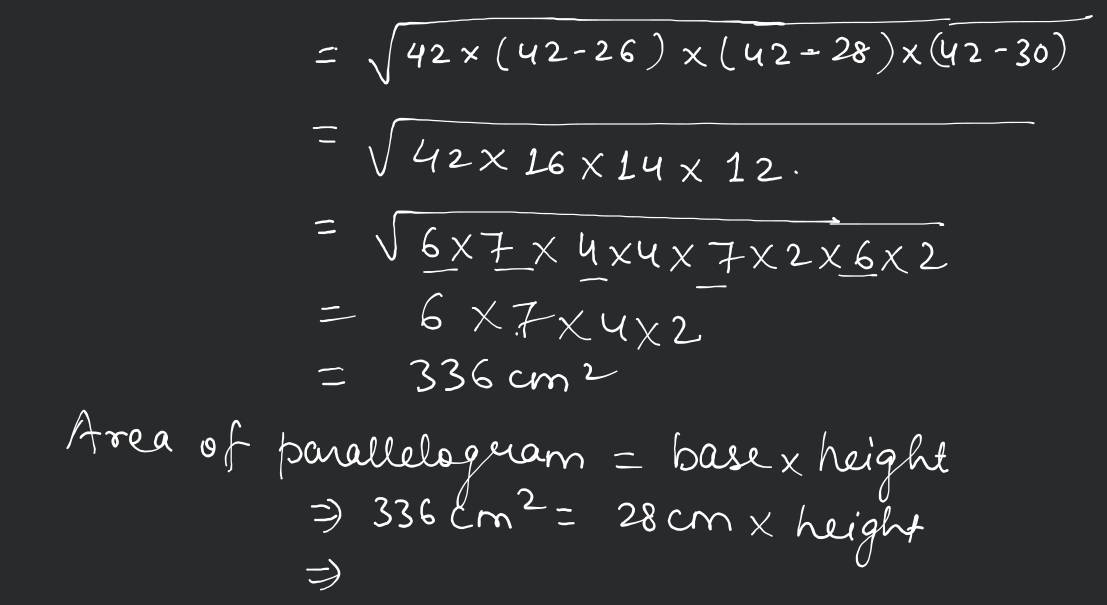 = √42 × (42-26) × (42-28) × (42-30)
= √42 × 16 × 14 × 12.
= √6×7 × 4×4× 7×2×6×2
= 6 ×7×4×2
= 336 cm²
Area of parallelogram = base × height
⇒ 336 cm² = 28 cm × height
⇒